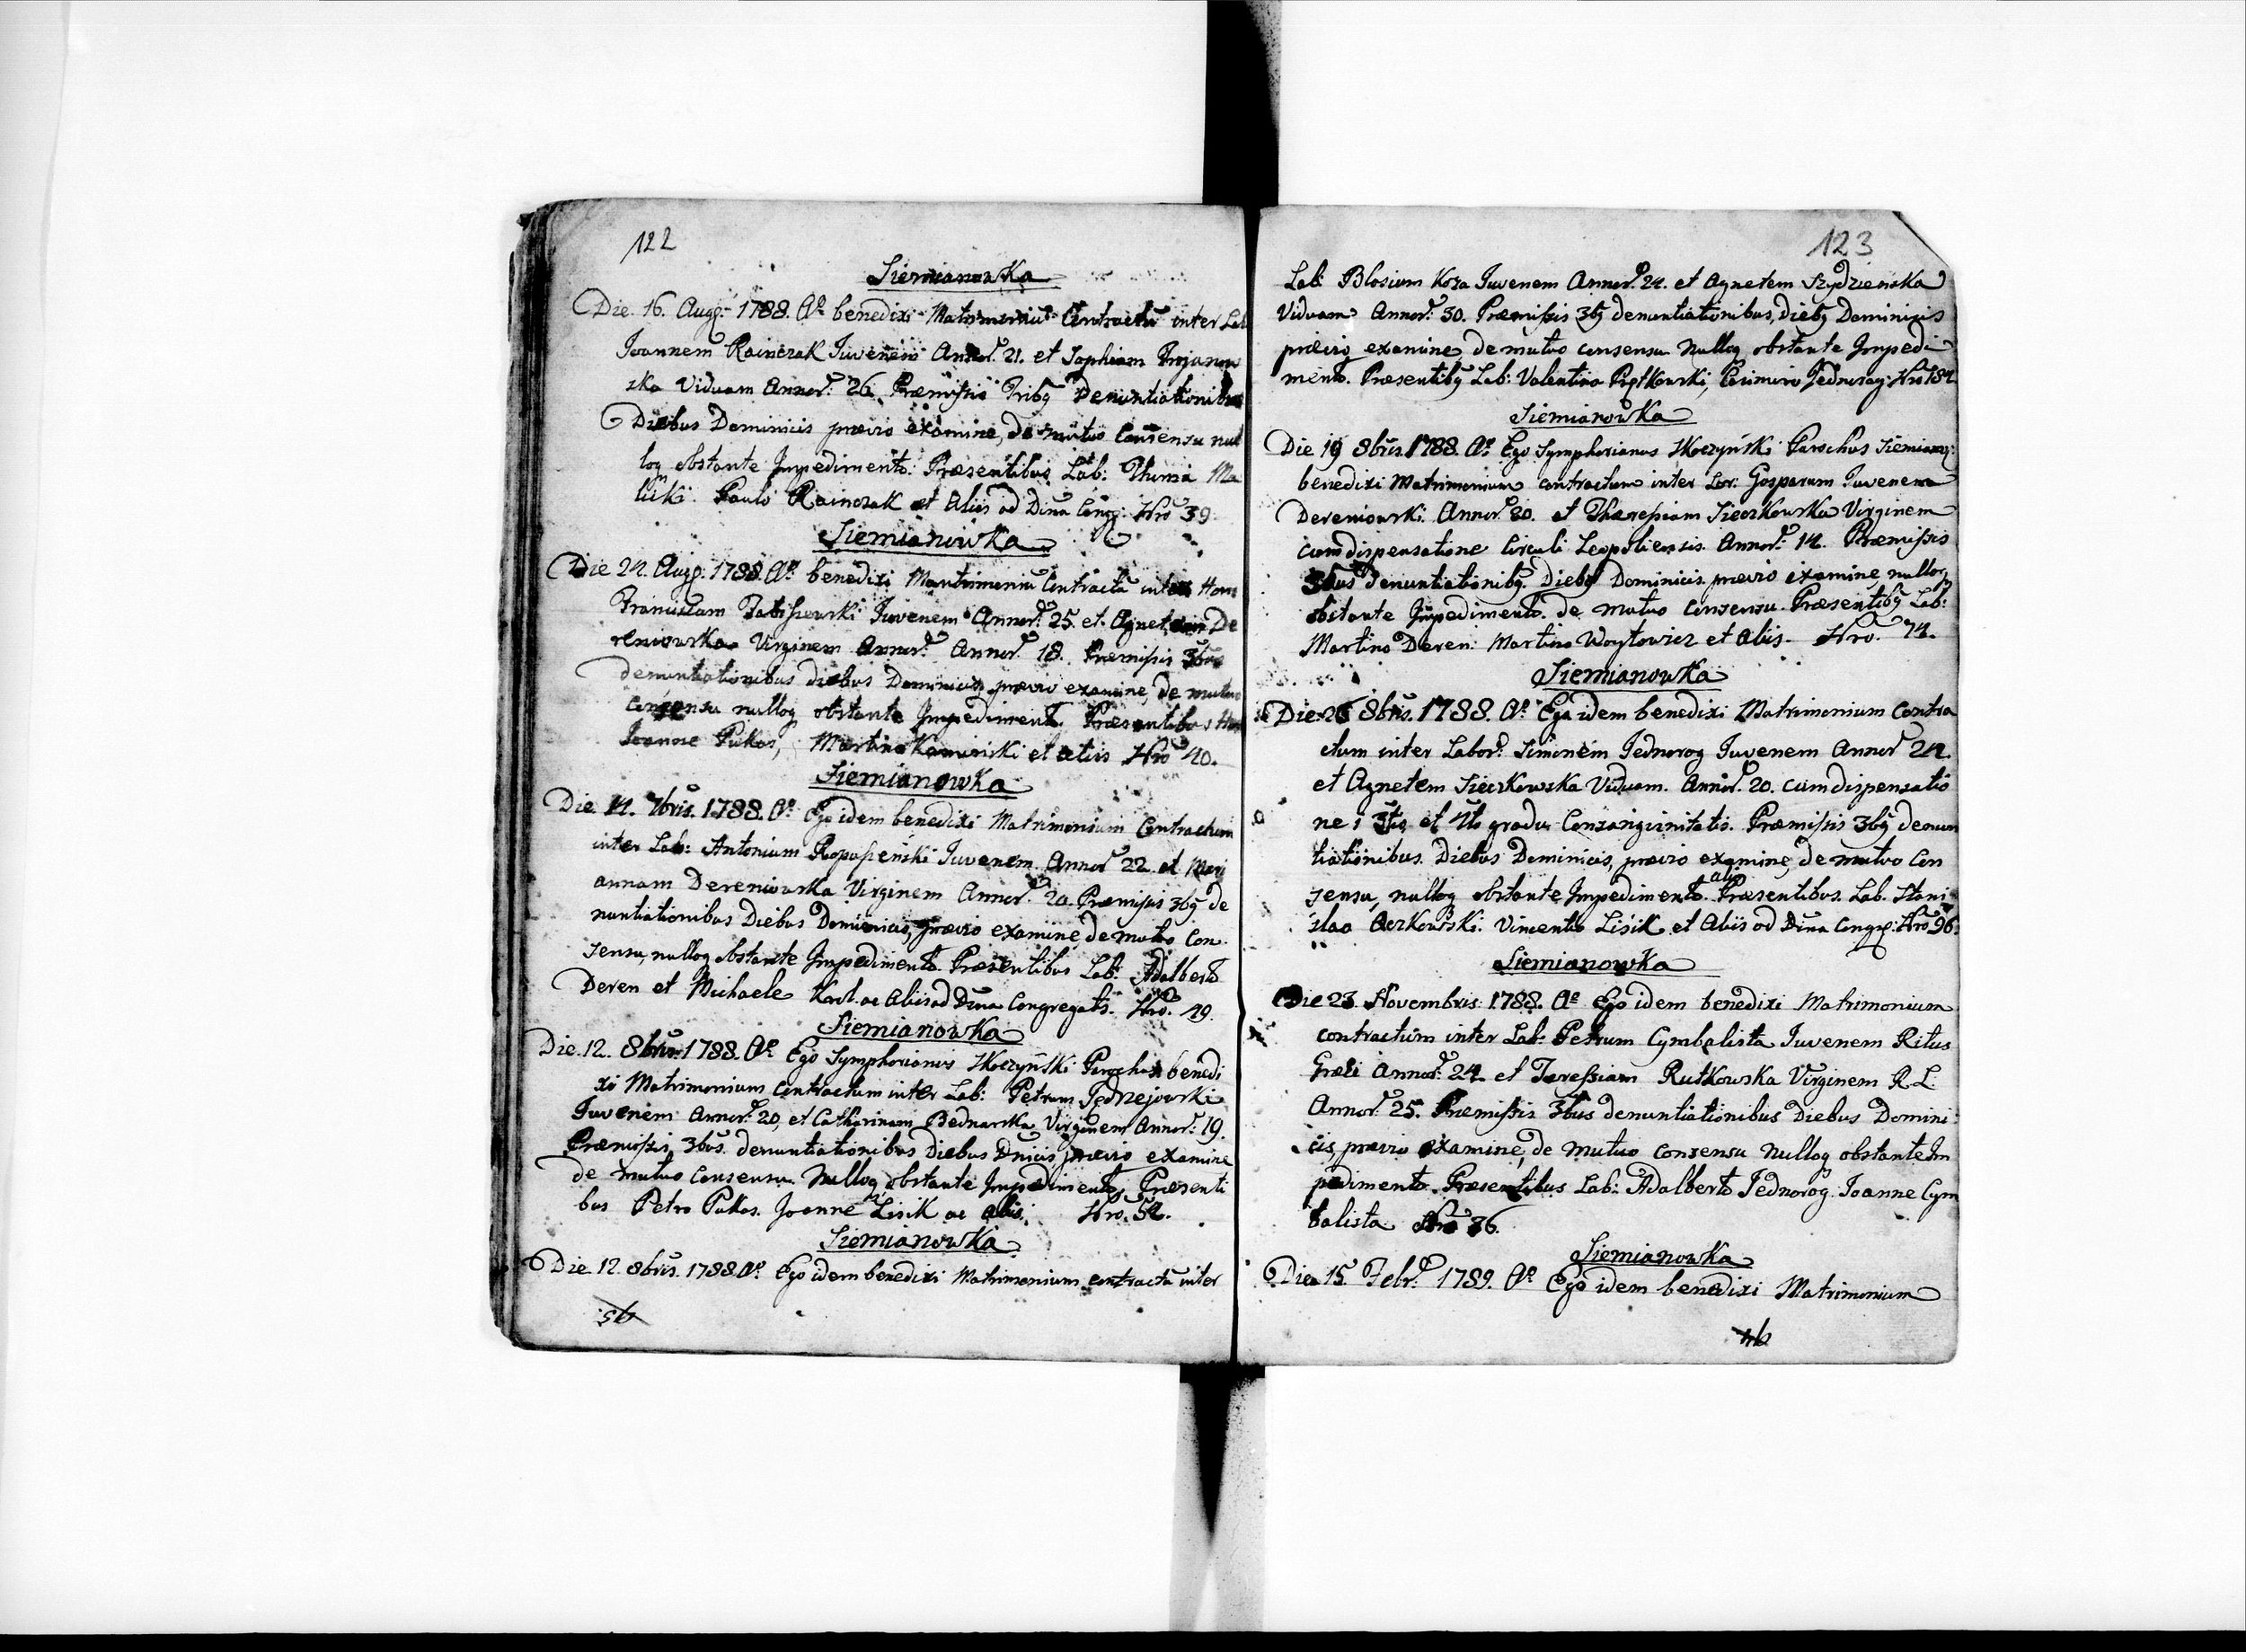 122
Siemianowka
Die 16. Aug: 1788. Ao benedixi Matrimoniũ Contractũ inter Lab
Joannem Rainczak Juvenem Annor: 21. et Sophiam Trojanow
ska Viduam Annor: 26. Præmissis Tribq Denuntiationibus
Diebus Dominicis prævio examine, de mutuo Consensu nul
loq obstante Impedimento. Præsentibus Lab: Thoma Ma
licki Paulo Rainczak et Aliis ad Dina Congg: Nro 39.
Siemianowka
Die 24. Augg: 1788. Ao benedixi Mantrimoniũ Contractã inter Hon
Franciscum Juvenem Annor: 25. et Agnetem De
reniowska Virginem Annor: Annor: 18. Præmissis 3bus
denuntiationibus diebus Dominicis, prævio examine, de mutuo
Consensu nulloq obstante Impedimento. Præsentibus Hon
Joanne Pukas, Martino Kaminski et aliis Nro 40.
Siemianowka
Die 14. 7bris. 1788. Ao Ego idem benedixi Matrimonium Contractum
inter Lab: Antonium Juvenem Annor 22. et Mari
annam Dereniowska Virginem Annor: 20. Præmissis 3bq de
nuntiationibus Diebus Dominicis, prævio examine, de mutuo Con
sensu, nulloq obstante Impedimento. Præsentibus Lab: Adalberto
Deren et Michaele Krol. ac Aliis ad Dina Congregatis. Nro. 49.
Siemianowka
Die. 12. 8bris. 1788. Ao Ego Symphorianus Skoczyński Parochus benedi
xi Matrimonium Contractum inter Lab: Petrum Jędrzejowski
Juvenem Annor: 20, et Catharinam Bednarska Virginem Annor: 19.
Præmissis 3bus. denuntiationibus Diebus Dnicis prævio examine
de mutuo Consensu. Nulloq obstante Impedimento, Præsenti
bus Petro Pukas. Joanne Lisik ac aliis. Nro. 54.
Siemianowka
Die 12. 8bris. 1788. Ao: Ego idem benedixi Matrimonium contractã inter
123
Lab: Blosium Koza Juvenem Annor: 24. et Agnetem
Viduam Annor: 30. Præmissis 3bq denuntiationibus, Diebq Dominicis
prævio examine, de mutuo consensu nulloq obstante Impedi
mento. Præsentibq Lab: Valentino Casimiro Jednorog: Nro 184
Siemianowka
Die 19 8bris. 1788. Ao: Ego Symphorianus Skoczyński Parochus Siemianq:
benedixi Matrimonium contractum inter Lor: Gasparum Juvenem
Dereniowski. Annor: 20. et Theresiam Sieczkowska Virginem
cum dispensatione Circuli Leopoliensis Annor: 14. Præmissis
3bus denuntiationibq. Diebq Dominicis prævio examine, nulloq
obstante Impedimento. de mutuo Consensu. Præsentibq Lab:
Martino Deren: Martino Woytowicz et aliis. Nro. 74.
Siemianowka
Die 26 8bris. 1788. Ao: Ego idem benedixi Matrimonium Contra
ctum inter Labor: Simonem Jednorog Juvenem Annor 24.
et Agnetem Sieczkowska Viduam. Annor. 20. cum dispensatio
ne i 3tio et 4to gradu Consangvinitatis. Præmissis 3bq denun
tiationibus. Diebus Dominicis, prævio examine, de mutuo Con
sensu, nulloq obstante Impedimento. alio Præsentibus. Lab. Stani
slao Vincentio Lisik et Aliis ad Dina Congg: Nro 96.
Siemianowka
Die 23 Novembris. 1788. Ao Ego idem benedixi Matrimonium
contractum inter Lab: Petrum Cymbalista Juvenem Ritus
Græci Annor: 24. et Teressiam Rutkowska Virginem R. L.
Annor: 25. Præmissis 3bus denuntiationibus Diebus Domini
cis, prævio examine, de mutuo consensu nulloq obstante Im
pedimento. Præsentibus Lab: Adalberto Jednorog. Joanne Cym
balista Nro 86.
Siemianowka
Die 15. Febr: 1789. Ao Ego idem benedixi Matrimonium